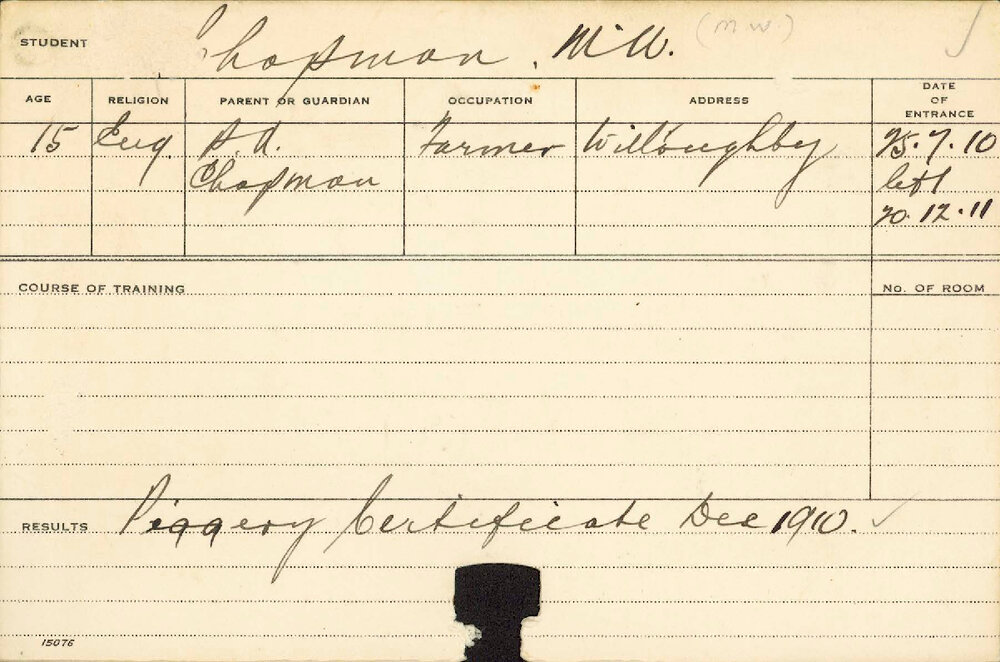 STUDENT Chapman, M.W. (M.W.)
AGE RELIGION PARENT OR GUARDIAN OCCUPATION ADDRESS DATE OF ENTRANCE
15 Eng. Farmer Willoughby 25.7.10
Chapman left
20.12.11
COURSE OF TRAINING No. OF ROOM
RESULTS Piggery Certificate Dec 1910.
15076